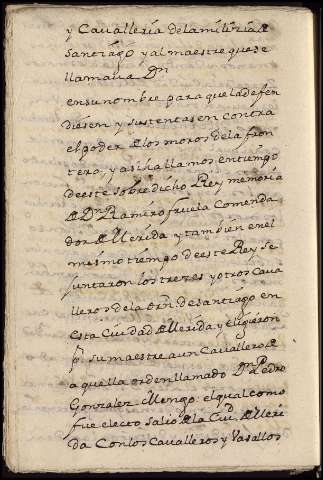 y Cavalleria de la milizia de
Santiago y al maestre que se
llamava Dn
en su nombre para que la defen
diesen y sustentasen contra
el poder de los moros de la fron
tera, y asi hallamos en tiempo
de este sobre dicho Rey memoria
de Dn Ramiro fruela Comenda
dor de Merida y tambien en el
mesmo tiempo de este Rey se
juntaron los trezes y otros Cava
lleros de la orn de Santiago en
esta Ciudad de Merida y eligieron
pr su maestre a un Cavallero de
aquella orden llamado Dn Pedro
Gonzalez Mengo: el qual como
fue electo salio de la Ciud de Meri
da Con los Cavalleros y Vasallos